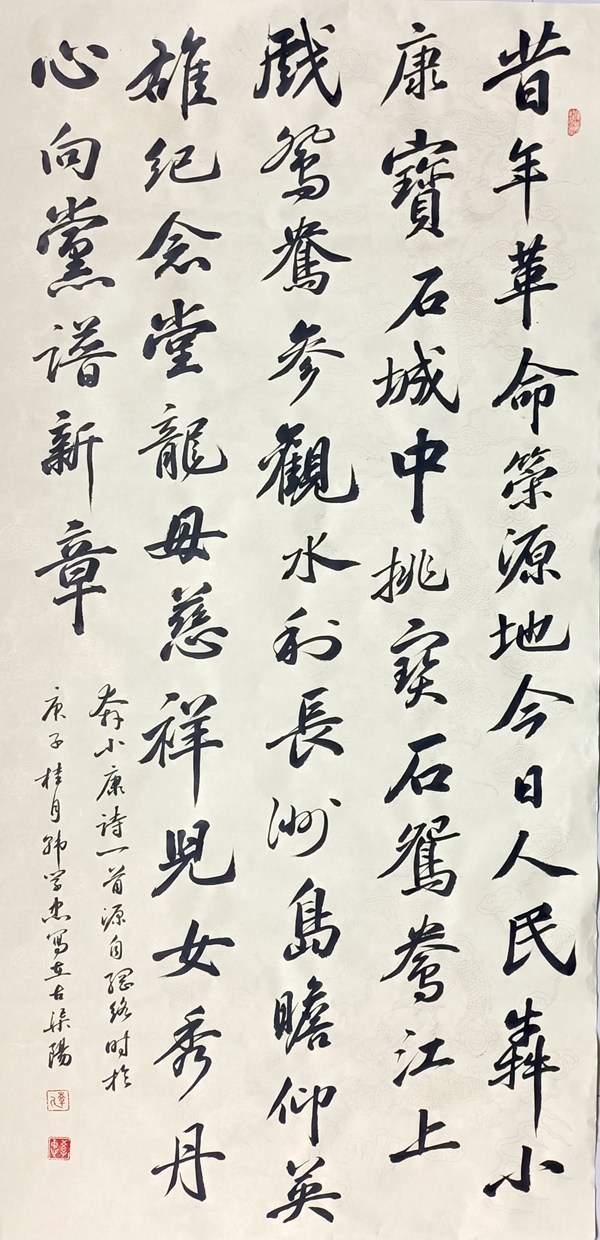 昔年革命策源地今日人民犇小
康寶石城中挑寶石鴛鴦江上
戲鴛鴦參觀水利長洲島瞻仰英
雄紀念堂龍母慈祥兒女秀丹
心向黨譜新章
奔小康詩一首源自網絡時於
庚子桂月韩學忠寫在古渠陽